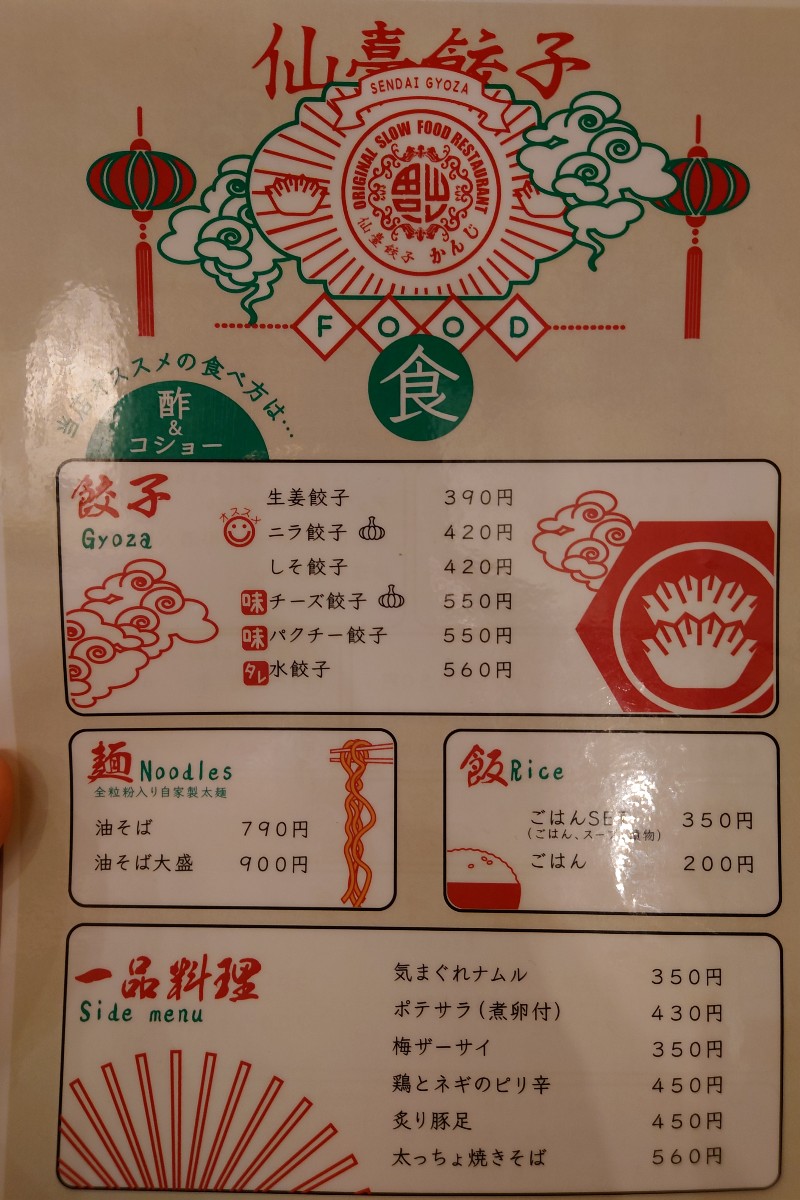 仙臺餃子
SENDAI GYOZA
ORIGINAL SLOW FOOD RESTAURANT
仙臺餃子 かんじ
FOOD
食
当店オススメの食べ方は…
酢
&
コショー
餃子
Gyoza
生姜餃子 390円
オススメ
ニラ餃子 420円
しそ餃子 420円
味 チーズ餃子 550円
味 パクチー餃子 550円
タレ 水餃子 560円
麺 Noodles
全粒粉入り自家製太麺
油そば 790円
油そば大盛 900円
飯 Rice
ごはんSET 350円
(ごはん、スープ、漬物)
ごはん 200円
一品料理
Side menu
気まぐれナムル 350円
ポテサラ(煮卵付) 430円
梅ザーサイ 350円
鶏とネギのピリ辛 450円
炙り豚足 450円
太っちょ焼きそば 560円